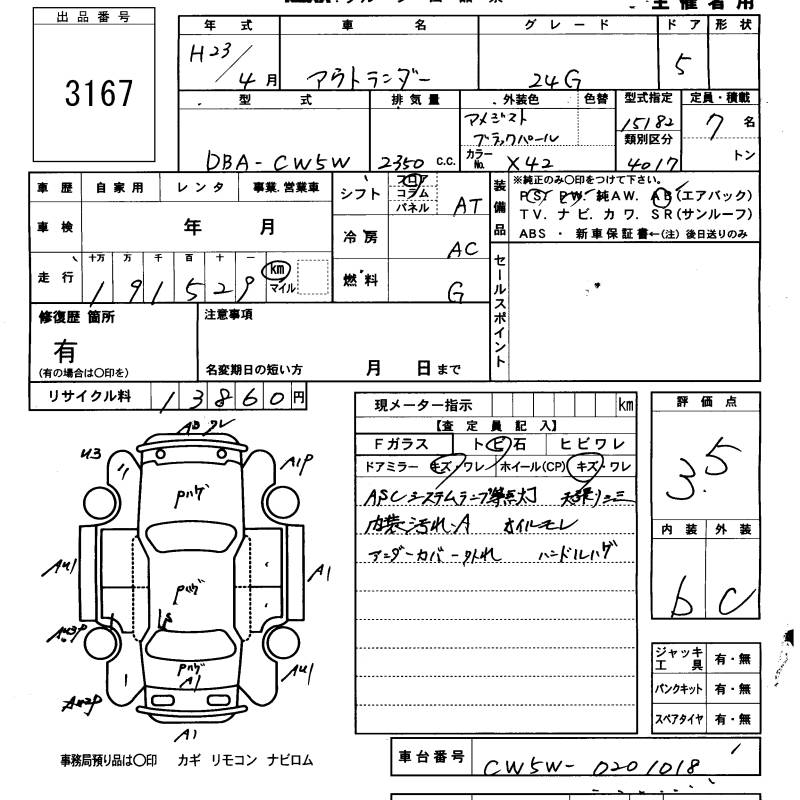 主催者用
出品番号
3167
年式 車名 グレード ドア 形状
H23/4月 アウトランダー 24G 5
型式 排気量 外装色 色替 型式指定 定員・積載
DBA-CW5W 2350 c.c. アメジスト ブラックパール 15182 7名
カラーNo. X42 類別区分 4017 トン
車歴 自家用 レンタ 事業.営業車
車検 年 月
走行 十万 万 千 百 十 一
191529 km マイル
シフト フロア コラム パネル AT
冷房 AC
燃料 G
装備品
※純正のみ〇印をつけて下さい。
PS. PW. 純AW. AB(エアバック)
TV. ナビ. カワ. SR(サンルーフ)
ABS ・ 新車保証書←(注) 後日送りのみ
セールスポイント
修復歴 箇所
有
(有の場合は〇印を)
注意事項
名変期日の短い方 月 日まで
リサイクル料 13860円
現メーター指示 km
【査定員記入】
Fガラス トビ石 ヒビワレ
ドアミラー キズ・ワレ ホイール(CP) キズ・ワレ
ASCシステムランプ等点灯 天張りシミ
内装汚れ-A オイルモレ
アンダーカバー外れ ハンドルハゲ
評価点
3.5
内装 外装
b C
ジャッキ工具 有・無
パンクキット 有・無
スペアタイヤ 有・無
U3
A1P
Pハゲ
AU1
A1
Pハゲ
AU3P
AU1
Pハゲ
A1
AU2P
A1
事務局預り品は〇印 カギ リモコン ナビロム
車台番号 CW5W-0201018